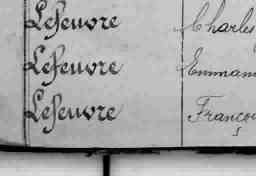 Lefeuvre Charles
Lefeuvre Emman
Lefeuvre Franço